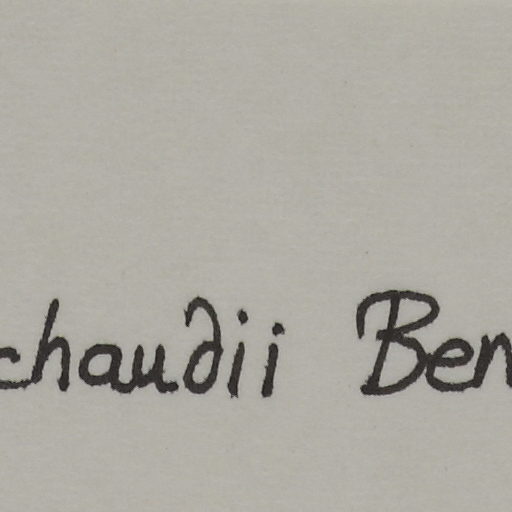 chaudii Ben